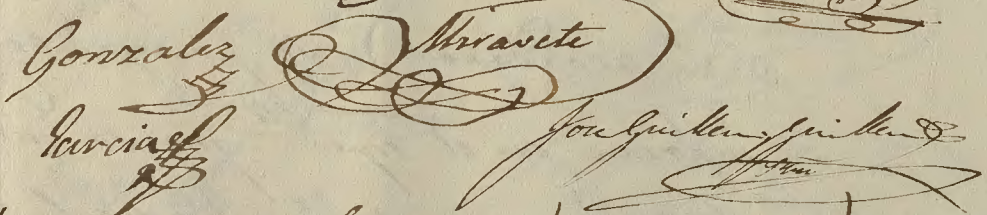 Gonzalez
Miravete
Garcia
Jose Guillem Guillem